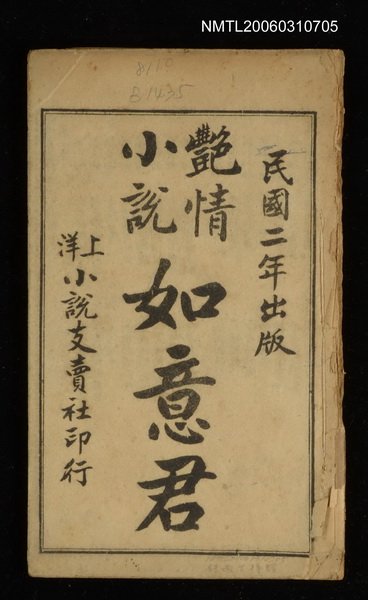 NMTL20060310705
8110
B1435
民國二年出版
艷情
小說
如意君
上洋
小說支賣社印行